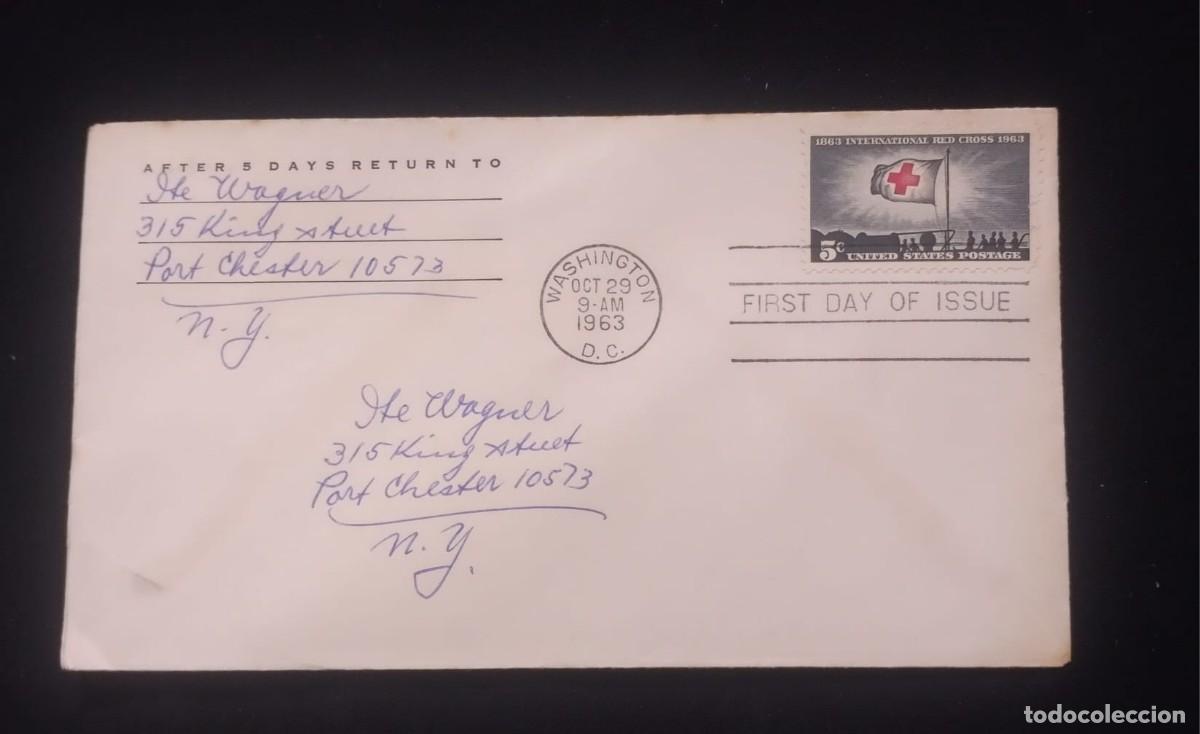 AFTER 5 DAYS RETURN TO
Ite Wagner
315 King Street
Port Chester 10573
N.Y.
1863 INTERNATIONAL RED CROSS 1963
5c UNITED STATES POSTAGE
WASHINGTON
OCT 29
9-AM
1963
D.C.
FIRST DAY OF ISSUE
Ite Wagner
315 King Street
Port Chester 10573
N.Y.
todocoleccion